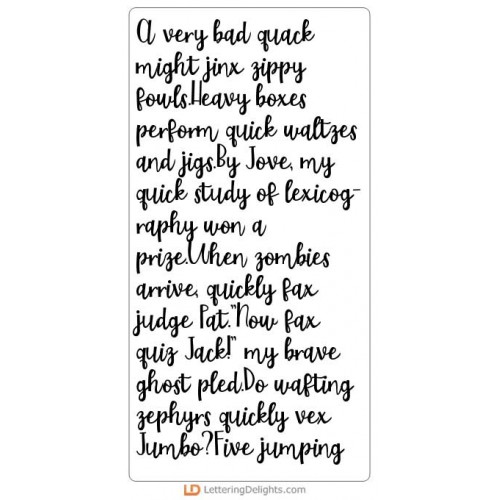 A very bad quack
might jinx zippy
fowls.Heavy boxes
perform quick waltzes
and jigs.By Jove, my
quick study of lexicog-
raphy won a
prize.When zombies
arrive, quickly fax
judge Pat."Now fax
quiz Jack!" my brave
ghost pled.Do wafting
zephyrs quickly vex
Jumbo?Five jumping
LD LetteringDelights.com